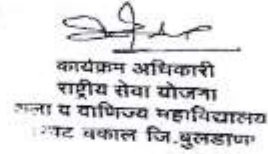 कार्यक्रम अधिकारी
राष्ट्रीय सेवा योजना
कला व वाणिज्य महाविद्यालय
वकाल जि.बुलडाणा